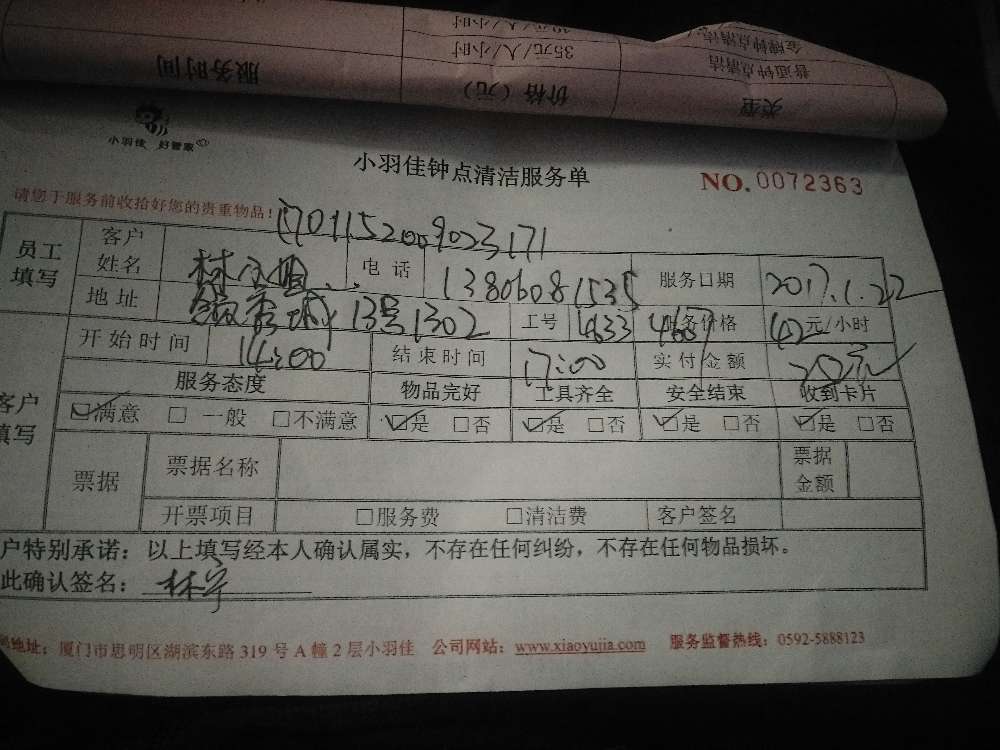 金牌钟点清洁
普通钟点清洁 35元/人/小时
类型 价格（元） 服务时间
小羽佳 好管家
小羽佳钟点清洁服务单
NO. 0072363
请您于服务前收拾好您的贵重物品!
1701152009023171
员工填写 客户姓名 林小姐 电话 13806081535 服务日期 2017.1.22
地址 13号1302 工号 4633 服务价格 42元/小时
开始时间 14:00 结束时间 17:00 实付金额
服务态度 物品完好 工具齐全 安全结束 收到卡片
客户填写 ☑满意 □一般 □不满意 ☑是 □否 ☑是 □否 ☑是 □否 ☑是 □否
票据 票据名称 票据金额
开票项目 □服务费 □清洁费 客户签名
户特别承诺：以上填写经本人确认属实，不存在任何纠纷，不存在任何物品损坏。
此确认签名：林宇
地址：厦门市思明区湖滨东路 319 号 A 幢 2 层小羽佳 公司网站：www.xiaoyujia.com 服务监督热线：0592-5888123